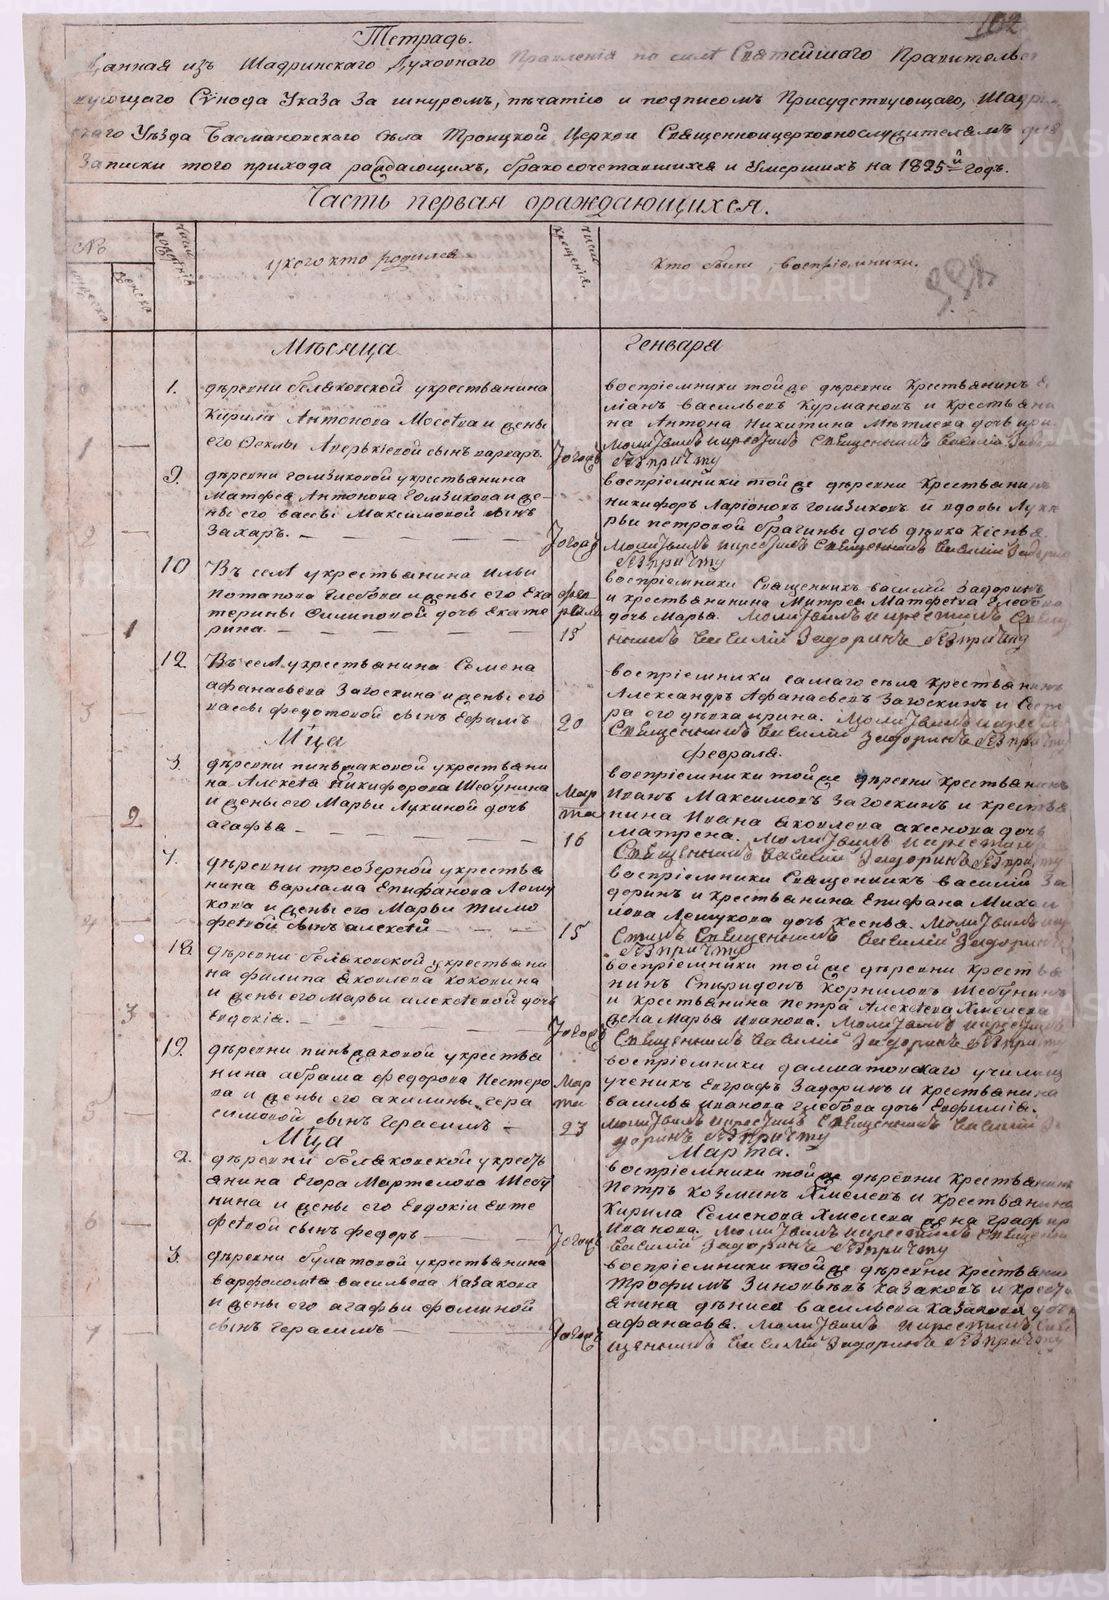 102
Тетрадь.
Данная изъ Шадринскаго Духовнаго Правленія по силѣ Святейшаго Правительс
вующаго Сѵнода Указа За шнуромъ, печатію и подписомъ Присудствующаго,
скаго Уѣзда Басмановскаго села Троицкой Церкви Священноицерковнослужителямъ для
Записки того прихода раждающихъ, бракосочетавшихся и Умершихъ на 1825й годъ.
Часть первая ораждающихся.
№
Мужеска
Женска
Число рожденія
укого кто родился
Число крещенія.
Кто были, воспріемники.
Мѣсяца
Генваря
1.
деревни беляковской укрестьянина
Кирила Антонова Мосеева и жены
его Феклы Аверькіевой сынъ
1
Тогожъ
воспріемники тойже деревни Крестьянинъ
Васильевъ Курмановъ и крестьяни
на Антона Никитина дочь
Молитвилъ и крестилъ Священникъ Василій
безпричту
деревни гомзиковой укрестьянина
Матфея Антонова Гомзикова и же
ны его вассы Максимовой сынъ
Захаръ.
2
воспріемники тойже деревни крестьянинъ
никифоръ Ларіоновъ гомзиковъ и вдовы Лук
рьи петровой брагины дочь девка
Молитвилъ и крестилъ Священникъ Василій Задорин
безпричту
10
Въ селѣ укрестьянина Ильи
Потапова Глебова и жены его Ека
терины Филиповой дочь Екате
рина.
1
Февраля
15
воспріемники Священникъ василій Задоринъ
и крестьянина Матфеева Глебова
дочь Марья. Молитвилъ и крестилъ Свящ
нникъ Василій Задоринъ безпричту
12
Въ селѣ укрестьянина Семена
афанасьева Загоскина и жены его
вассы федотовой сынъ Ефимъ
3
20
воспріемники самаго села крестьянинъ
Александръ Афанасьевъ Загоскинъ и Сест
ра его девка ирина. Молитвилъ и крести
Священникъ Василій Задоринъ безпричту
Мца
февраля.
3.
деревни пиньжаковой укрестьяни
на Алексѣя Никифорова Шебунина
и жены его Марьи Лукиной дочь
агафья
2
Марта
16
воспріемники тойже деревни крестьянинъ
Иванъ Максимовъ Загоскинъ и крестья
нина Ивана Яковлева аксенова дочь
матрена. Молитвилъ и крестилъ
Священникъ Василій Задоринъ безпричту
деревни треозерной укрестья
нина варлама Епифанова Лешу
кова и жены его Марьи тимо
феевой сынъ алексей
4
15
воспріемники Священникъ василій За
доринъ и крестьянина Епифана Михаи
лова Лешукова дочь ксенья. Молитвилъ и кре
стилъ Священникъ Василій Задоринъ
безпричту
18.
деревни беляковской укрестьяни
на филипа Яковлева коковина
и жены его Марьи алексеевой дочь
Евдокія.
3
воспріемники тойже деревни крестья
нинъ Спиридонъ Корниловъ Шебунинъ
и крестьянина петра Алексеева Хмелева
жена Марья Иванова. Молитвилъ и крестилъ
Священникъ Василій Задоринъ безпричту
19.
деревни пиньжаковой укрестья
нина абрама федорова Нестеро
ва и жены его акилины гера
симовой сынъ герасимъ
5
Марта
23
воспріемники далматовскаго училищ
ученикъ Евграфъ Задоринъ и крестьянина
василья иванова глебова дочь Евфимія.
Молитвилъ и крестилъ Священникъ Василій За
доринъ безпричту
Мца
Марта.
2.
деревни беляковской укресть
янина Егора Мартемова Шебу
нина и жены его Евдокіи Евте
феевой сынъ федоръ
6
воспріемники тойже деревни крестьянинъ
Петръ козминъ Хмелевъ и крестьянина
Кирила Семенова Хмелева жена
Иванова. Молитвилъ и крестилъ Священник
Василій Задоринъ безпричту
3.
деревни булатовой укрестьянина
варфоломѣя васильева Казакова
и жены его агафьи фоминой
сынъ герасимъ
7
воспріемники тойже деревни крестьянин
Трофимъ Зиновьевъ казаковъ и кресть
янина дениса васильева казакова дочь
афанасья. Молитвилъ и крестилъ Свя
щенникъ Василій Задоринъ безпричту
METRIKI.GASO-URAL.RU